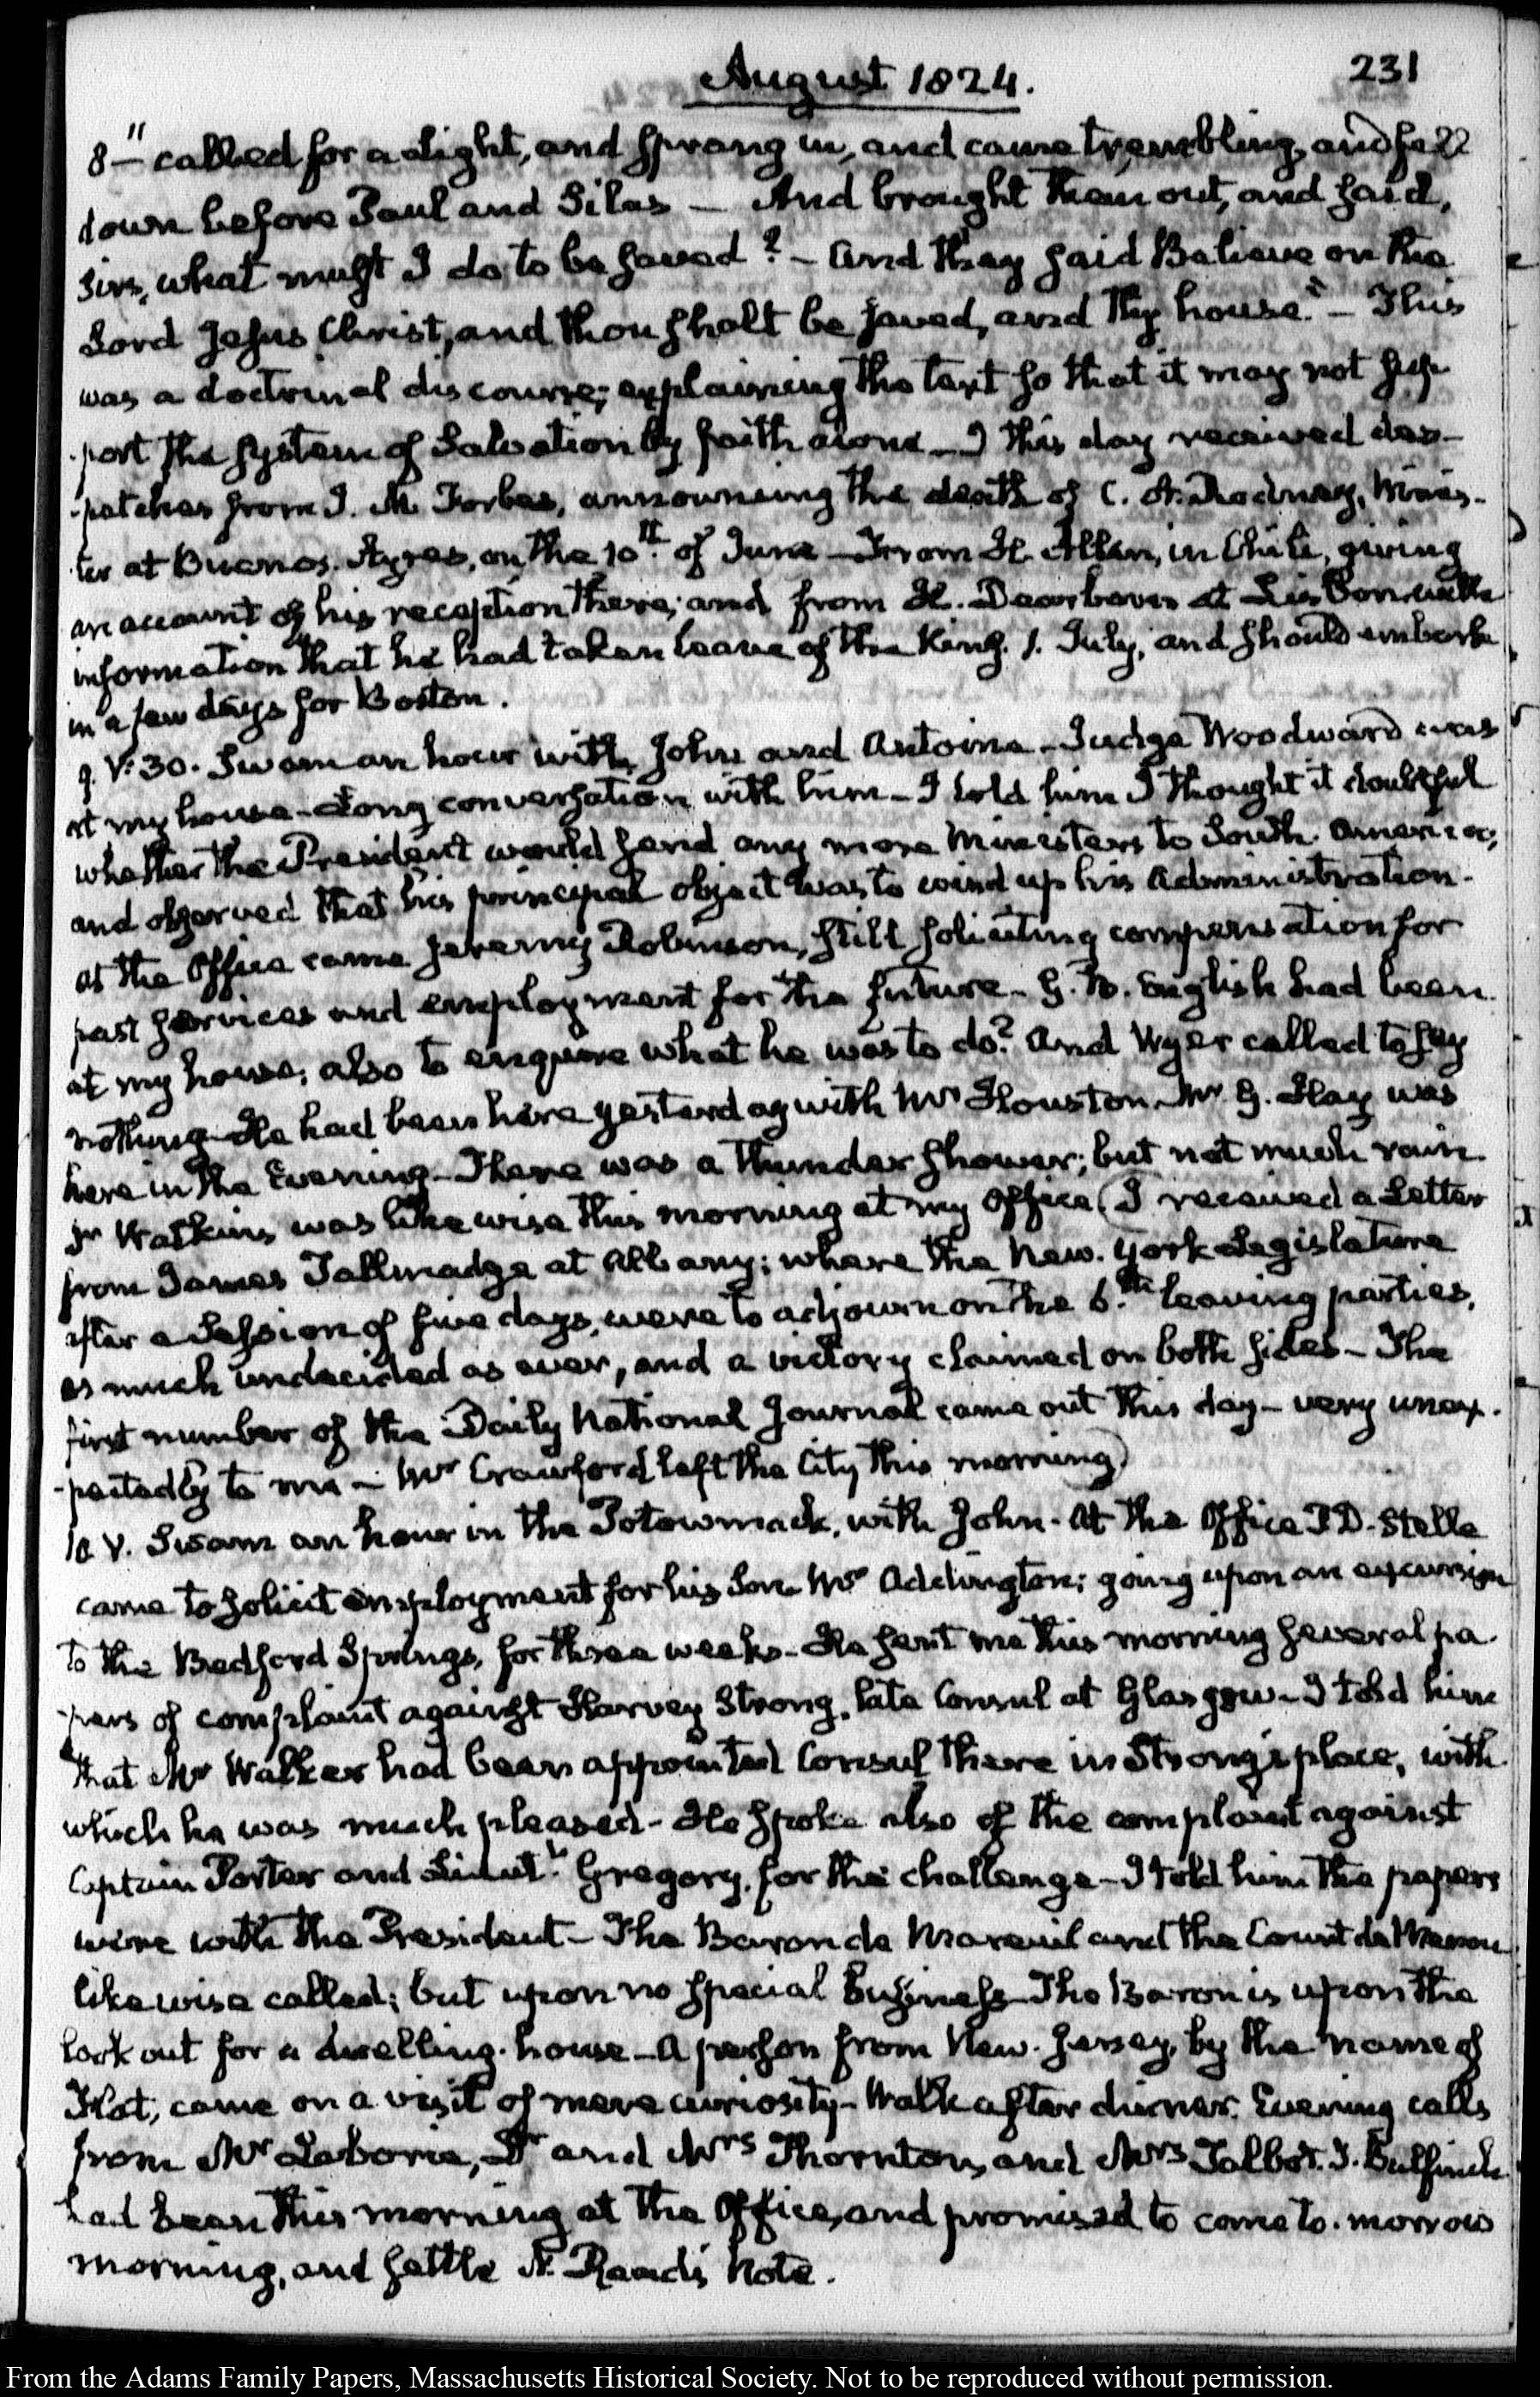 August 1824. 231
8–" called for a light, and sprang in, and came trembling, and fell
down before Paul and Silas — And brought them out, and said,
Sirs, what must I do to be saved? – And they said Believe on the
Lord Jesus Christ, and thou shalt be saved, and thy house." – This
was a doctrinal discourse; explaining the text so that it may not sup-
-port the system of Salvation by faith alone – I this day received des-
-patches from J. M. Forbes, announcing the death of C. A. Rodney, Minis-
-ter at Buenos-Ayres, on the 10th. of June – From H. Allen, in Chile, giving
an account of his reception there; and from H. Dearborn at Lisbon with
information that he had taken leave of the King. 1. July, and should embark
in a few days for Boston.
9. V:30. Swam an hour with John and Antoine – Judge Woodward was
at my house – Long conversation with him – I told him I thought it doubtful
whether the President would send any more Ministers to South America;
and observed that his principal object was to wind up his Administration.
at the Office came Jeremy Robinson, still soliciting compensation for
past services and employment for the future – G. B. English had been
at my house, also to enquire what he was to do? And Wyer called to say
nothing – He had been here yesterday with Mr Houston. Mr. G. Hay was
here in the Evening – There was a thunder shower; but not much rain.
Dr Watkins was likewise this morning at my Office (I received a Letter
from James Tallmadge at Albany; where the New-York Legislature
after a Session of five days, were to adjourn on the 6.th leaving parties,
as much undecided as ever, and a victory claimed on both sides – The
first number of the Daily National Journal came out this day – very unex-
-pectedly to me – Mr Crawford left the City this morning)
10 V. Swam an hour in the Potowmack, with John. At the Office P. D. Stelle
came to solicit employment for his Son. Mr Addington; going upon an excursion
to the Bedford Springs, for three weeks – He sent me this morning several pa-
-pers of complaint against Harvey Strong, late Consul at Glasgow – I told him
that Mr Walker had been appointed Consul there in Strong's place, with
which he was much pleased – He spoke also of the complaint against
Captain Porter and Lieutt. Gregory, for the challenge – I told him the papers
were with the President – The Baron de Mareuil and the Count de Menou
likewise called; but upon no special business – The Baron is upon the
look out for a dwelling-house – A person from New-Jersey, by the name of
came on a visit of mere curiosity – Walk after dinner. Evening calls
from Mr Laborie, Dr and Mrs Thornton, and Mrs Talbot. T. Bulfinch
had been this morning at the Office, and promised to come to-morrow
morning, and settle N. Reed's Note.
From the Adams Family Papers, Massachusetts Historical Society. Not to be reproduced without permission.